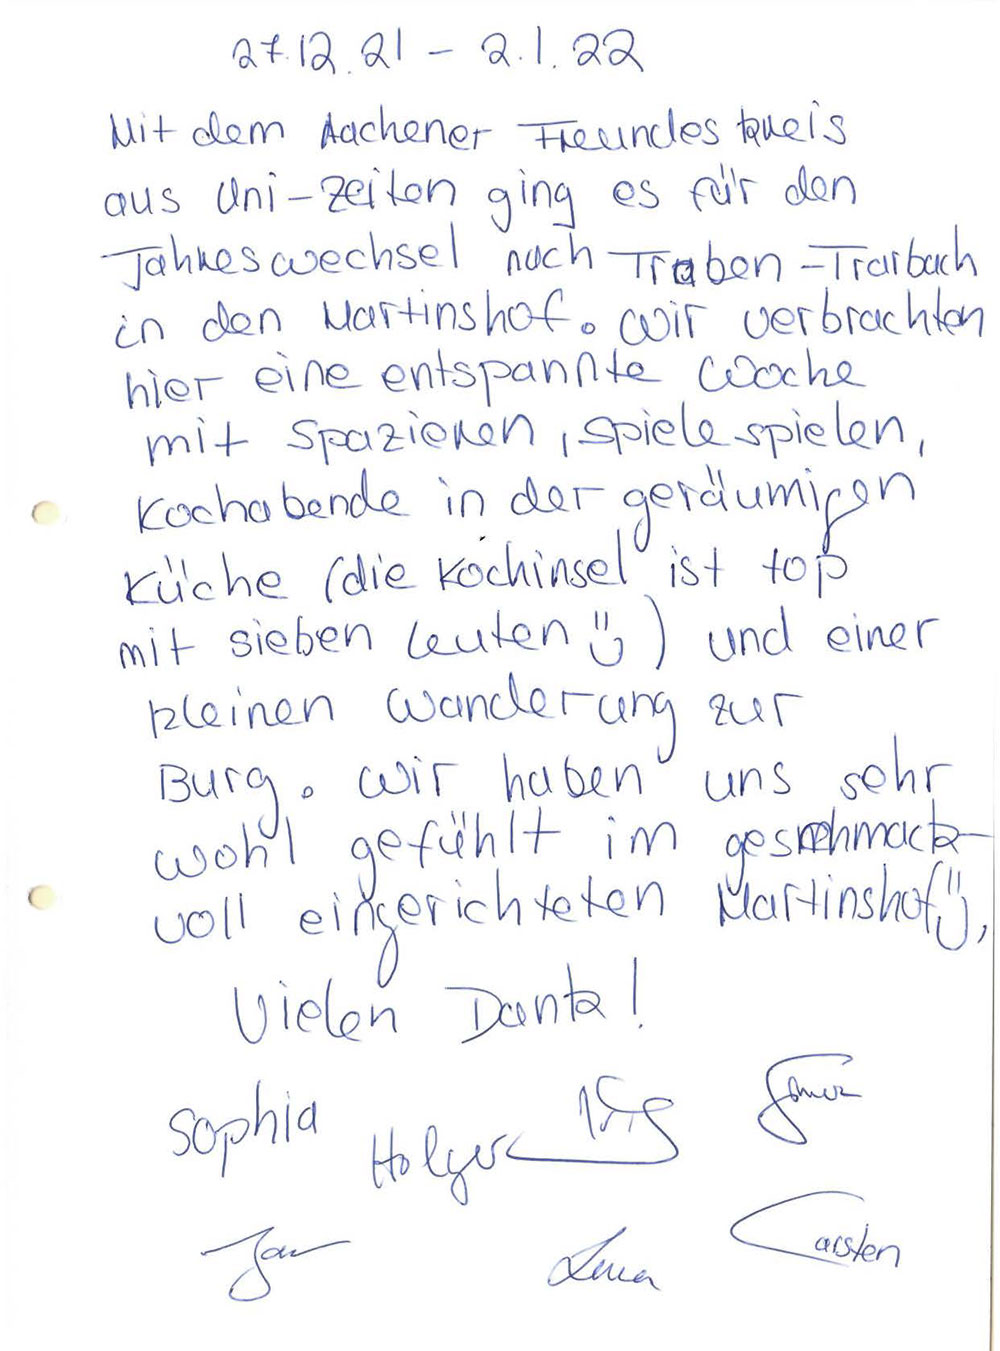 27.12.21 – 2.1.22
Mit dem Aachener Freundeskreis
aus Uni-Zeiten ging es für den
Jahreswechsel nach Traben-Trarbach
in den Martinshof. Wir verbrachten
hier eine entspannte Woche
mit Spazieren, Spiele spielen,
Kochabende in der geräumigen
Küche (die Kochinsel ist top
mit sieben Leuten ü) und einer
kleinen Wanderung zur
Burg. Wir haben uns sehr
wohl gefühlt im geschmack-
voll eingerichteten Martinshof ü,
Vielen Dank!
Sophia
Holger
Jan Lena Carsten